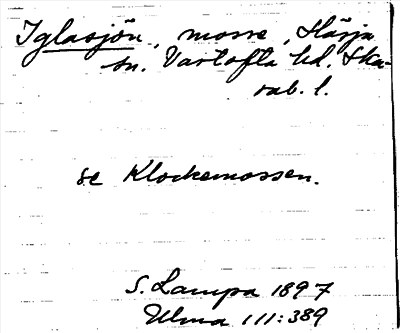 Iglasjön, mosse, Härja
sn. Vartofta hd. Ska-
rab. l.
se Klockemossen.
S. Lampa 1897
Ulma 111:389